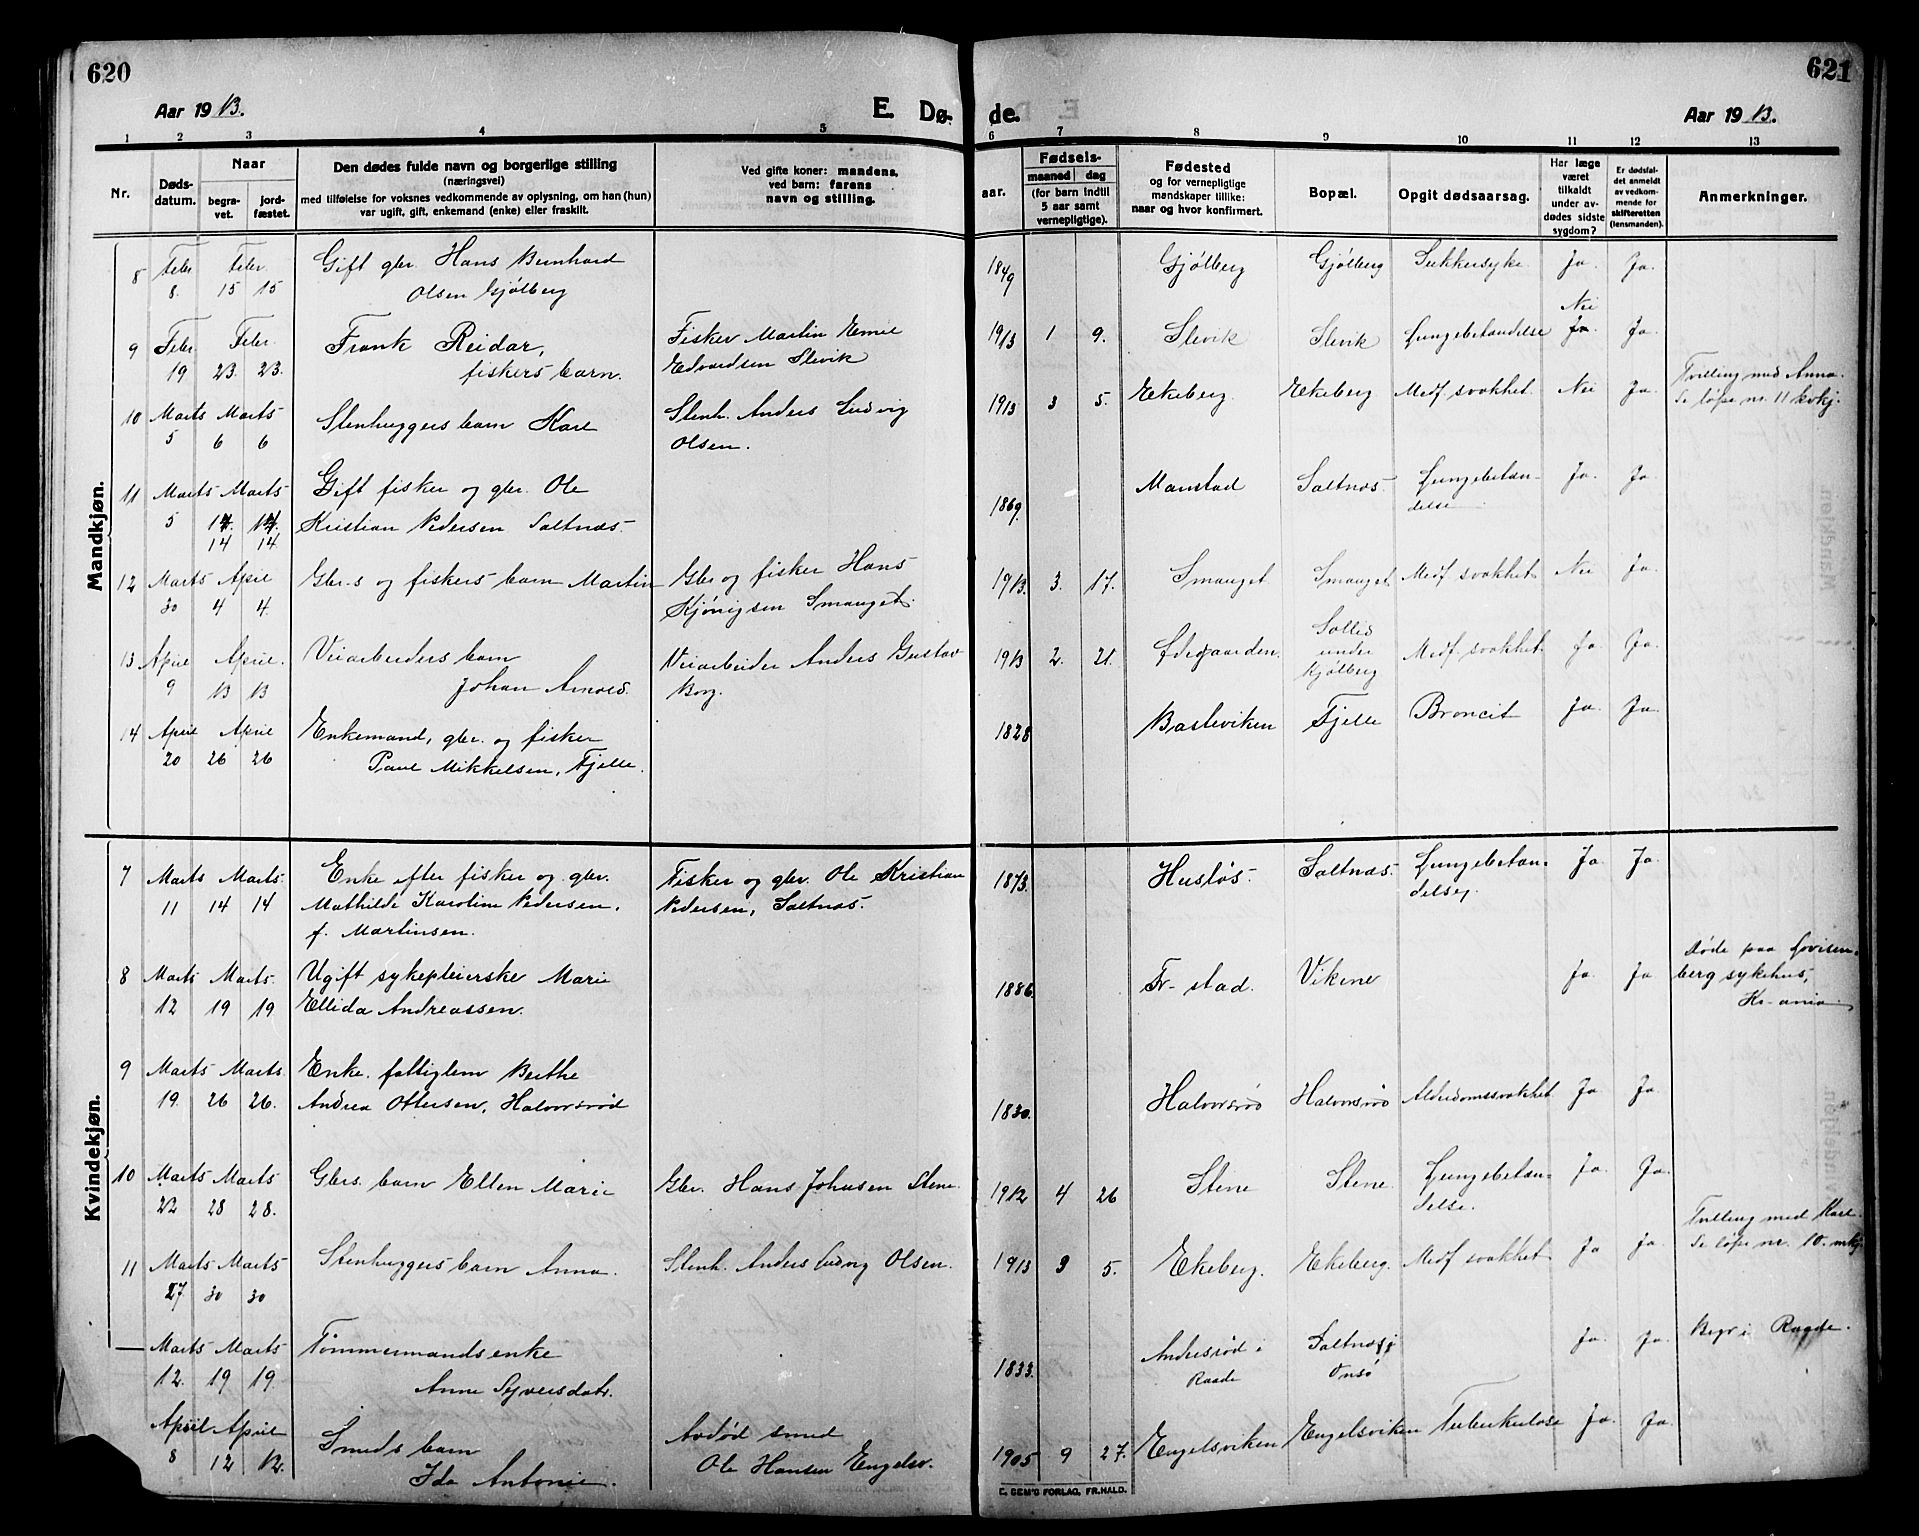 620
Aar 1913.
E. Dø-
1 2 3 4 5
Nr.
Døds-
datum.
Naar
begra-
vet.
jord-
fæstet.
Den dødes fulde navn og borgerlige stilling
(næringsvei)
med tilføielse for voksnes vedkommende av oplysning, om han (hun)
var ugift, gift, enkemand (enke) eller fraskilt.
Ved gifte koner: mandens,
ved barn: farens
navn og stilling.
Mandkjøn.
8 Febr Febr Gift gbr. Hans Bernhard
8. 15 15 Olsen Gjølberg
9 Febr Febr. Frank Reidar, Fisker Martin Emil
19 23. 23. fiskers barn. Edvardsen Slevik
10 Marts Marts Stenhuggers barn Karl Stenh. Anders Ludvig
5 6 6 Olsen.
11 Marts Marts Gift fisker og gbr. Ole
5 Kristian Pedersen Saltnæs.
14 14
12 Marts April Gbr.s og fiskers barn Martin Gbr og fisker Hans
30 4 4. Kjönigsen Smauget.
13 April April. Veiarbeiders barn Veiarbeider Anders Gustav
9 13 13 Johan Arnold. Borg.
14 April April Enkemand, gbr. og fisker
20 26 26 Paul Mikkelsen, Fjelle.
Kvindekjøn.
7 Marts Marts. Enke efter fisker og gbr. Fisker og gbr. Ole Kristian
11 14 14 Mathilde Karoline Pedersen, Pedersen, Saltnæs.
f. Martinsen.
8 Marts Marts. Ugift sykepleierske Marie
12 19 19 Ellida Andreassen.
9 Marts Marts. Enke. fattiglem Berthe
19. 26 26. Andrea Ottersen, Halvorsrød
10 Marts Marts Gbrs. barn Ellen Marie Gbr. Hans Johnsen Stene.
22 28 28.
11 Marts Marts Stenhuggers barn Anna. Stenh. Anders Ludvig Olsen.
27. 30 30
— Marts Marts Tömmermands enke
12. 19 19. Anne Syversdatr.
April April Smeds barn Avdød smed
8 12 12. Ida Antonie. Ole Hansen Engelsv.
621
de.
Aar 1913.
6 7 8 9 10 11 12 13
aar.
Fødsels-
maaned dag
(for barn indtil
5 aar samt
vernepligtige).
Fødested
og for vernepligtige
mandskaper tillike:
naar og hvor konfirmert.
Bopæl.
Opgit dødsaarsag.
Har læge
været
tilkaldt
under av-
dødes sidste
sygdom?
Er dødsfal-
det anmeldt
av vedkom-
mende for
skifteretten
(lensmanden).
Anmerkninger.
1849 Gjölberg Gjölberg Sukkersyke. Ja. Ja.
Nei
1913 1 9. Slevik Slevik Lungebetændelse Ja. Ja
Tvilling med Anna.
1913 3 5. Ekeberg. Ekeberg Medf. svakhet. Nei Ja. Se løpe nr. 11 kvkj.
1869. Manstad Saltnæs. Lungebetæn- Ja. Ja.
delse
1913. 3. 17. Smauget Smauget Medf. svakhet Nei Ja.
1913 2. 21. Ødegaarden. Sollid Medf. svakhet. Ja. Ja.
under
Kjølberg
1828 Basteviken Fjelle Broncit Ja. Ja.
1873. Husløs. Saltnæs. Lungebetæn- Ja. Ja.
delse
Døde paa Lovisen-
1886. Fr-stad. Vikene Ja. Ja berg sykehus,
Kr-ania.
1830. Halvorsrød Halvorsrød Alderdomssvakhet Ja. Ja.
1912 4 26 Stene Stene. Lungebetæn- Ja. Ja.
delse.
Tvilling med Karl.
1913 3 5. Ekeberg. Ekeberg. Medf svakhet Ja Ja. Se løpe nr. 10. mkj.
1833. Andersrød i Saltnæs i Ja. Ja. Begr. i Raade.
Raade Onsø
1905 9 27. Engelsviken Engelsviken Tuberkulose Ja. Ja.
E. SEM'S FORLAG, FR.HALD.